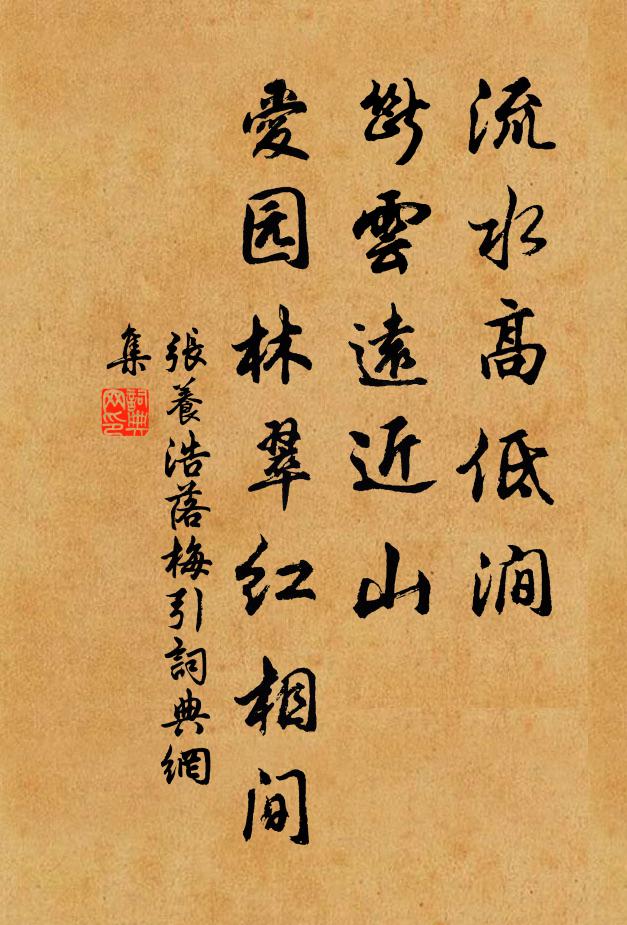 流水高低涧
断雲遠近山
愛园林翠红相间
張養浩落梅引詞典網
集
詞典
网印